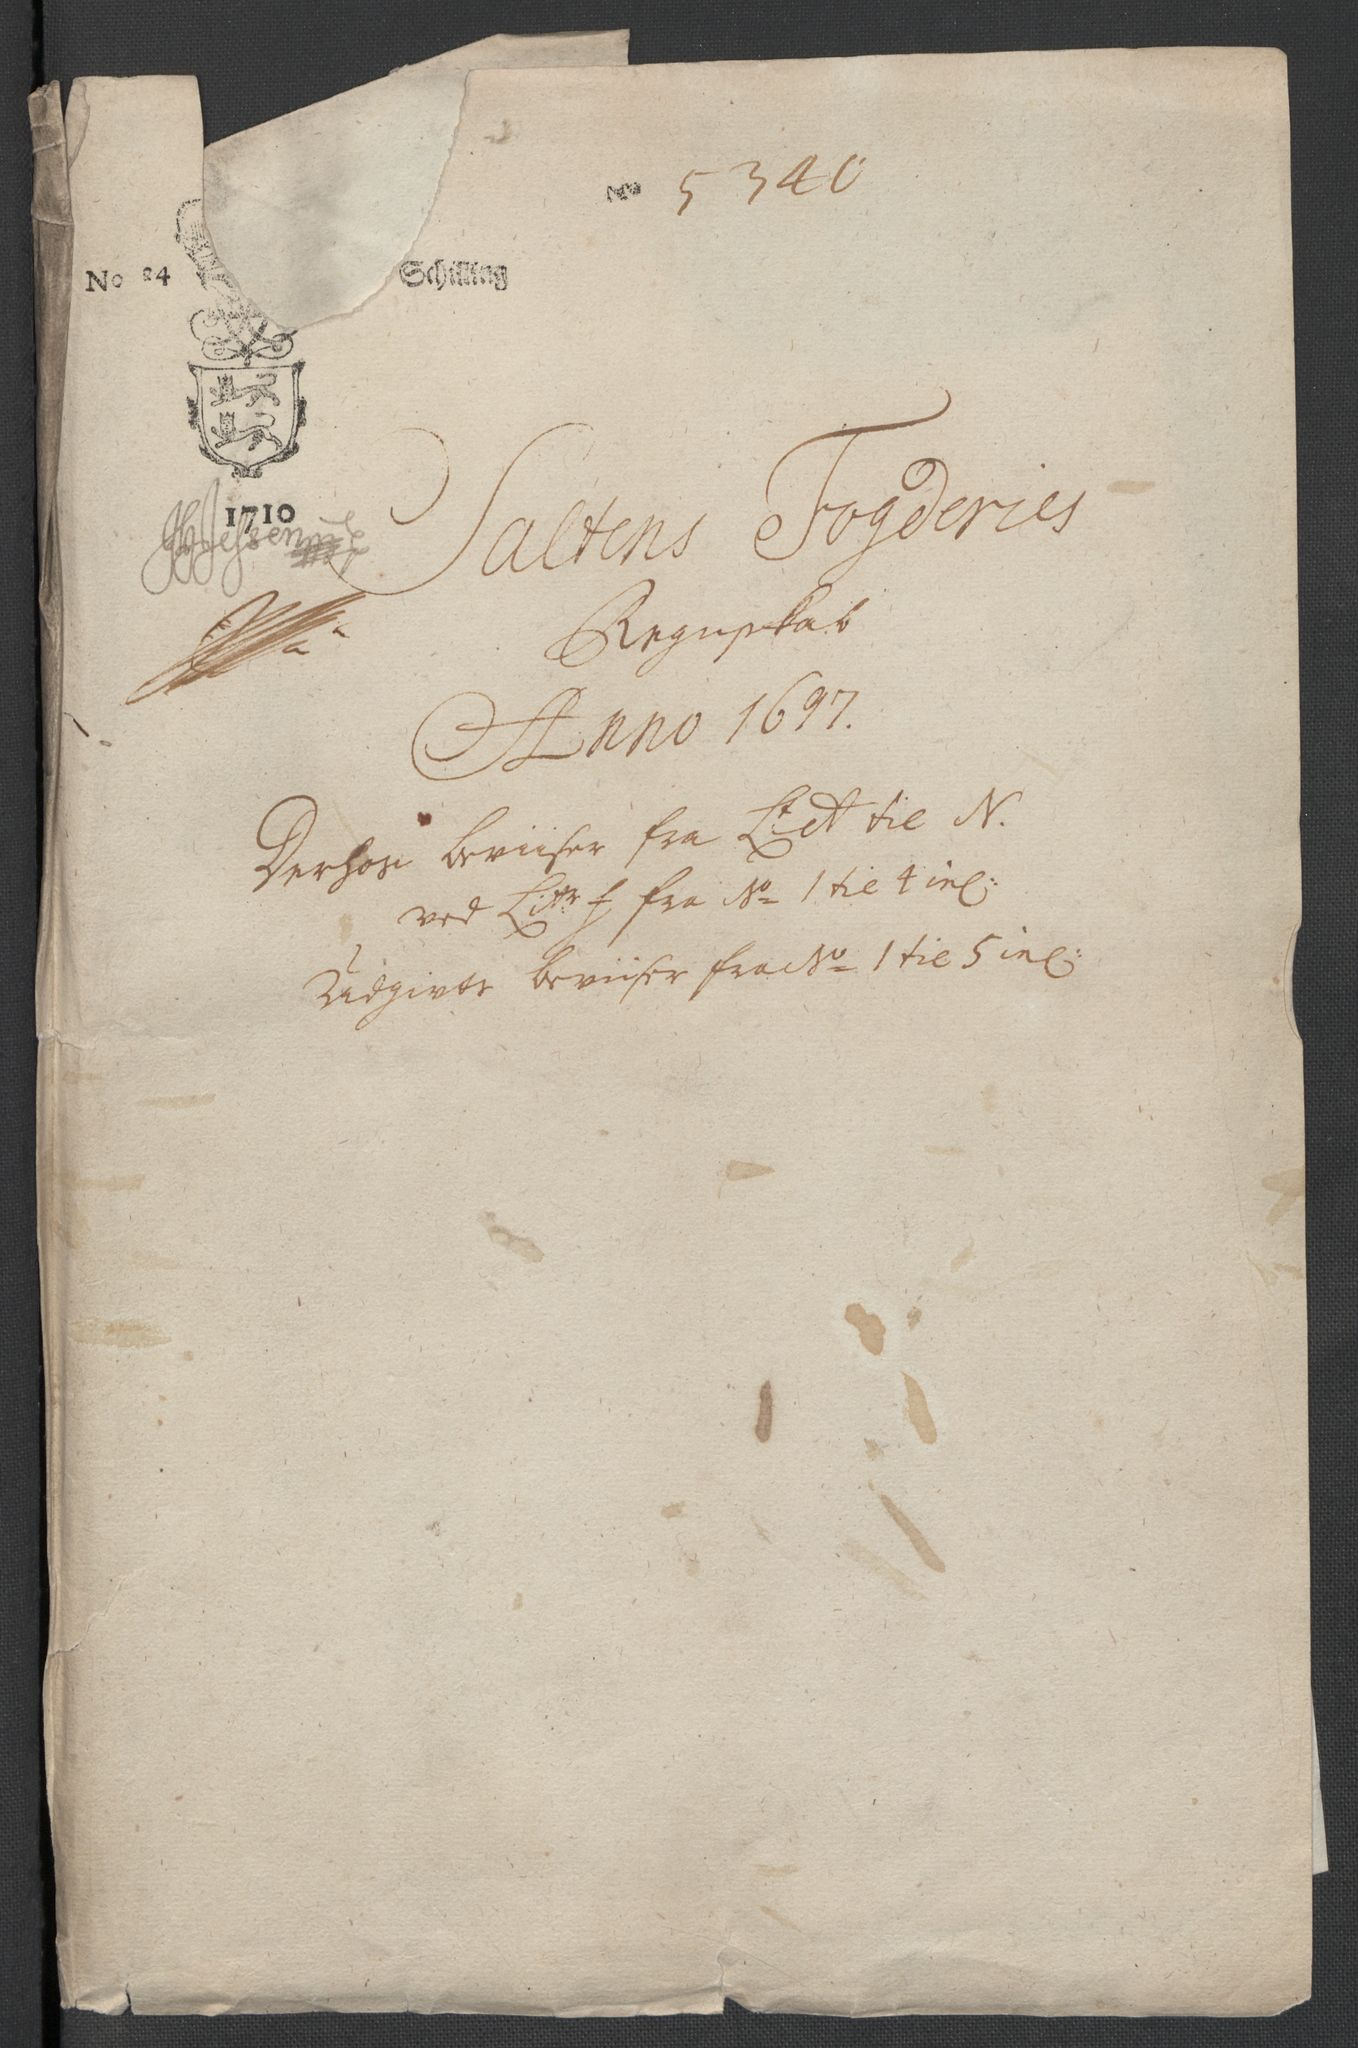 5340
No 24 Schilling
1710
Saltens Fogderies
Regnskab
Anno 1697.
Derhos beviiser fra Lit A til N.
ved Littr f fra No 1 til 4 incl:
Udgivts beviiser fra No 1 til 5 incl: